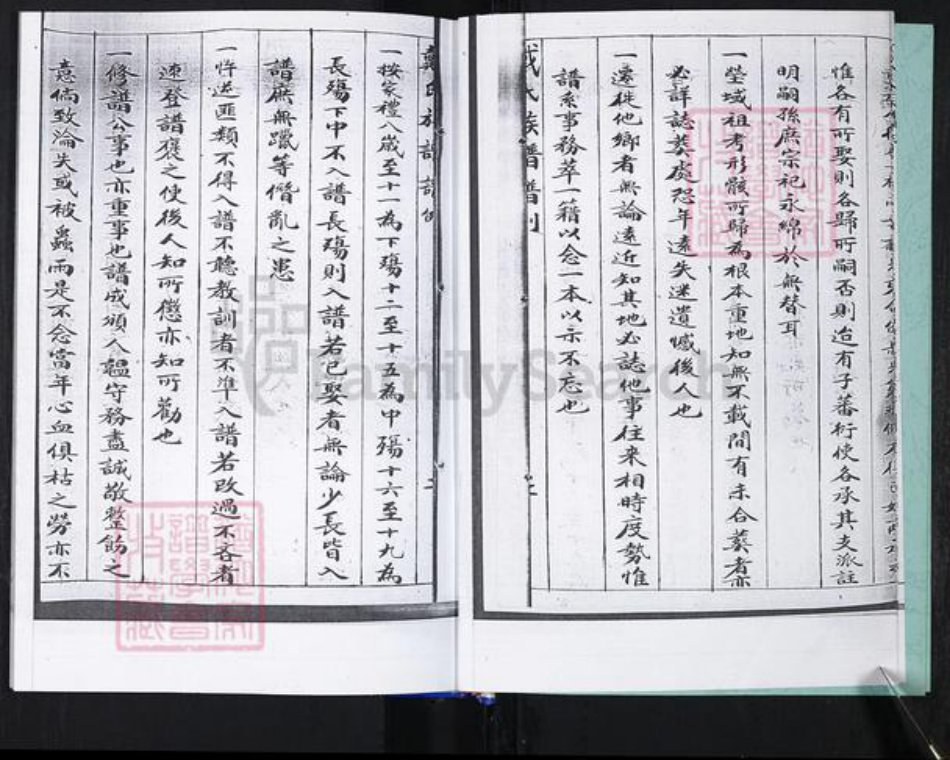 惟各有所娶則各歸所嗣否則迨有子蕃衍使各承其支派註
明嗣孫庶宗祀永綿於無替耳
一塋域祖考形骸所歸為根本重地知無不載間有未合葬者亦
必詳誌葬處恐年遠失迷遺憾後人也
一遷徙他鄉者無論遠近知其地必誌他事往來相時度勢惟
譜系事務萃一籍以念一本以示不忘也
戴氏族譜譜例
戴氏族譜譜例
一按家禮八歲至十一為下殤十二至十五為中殤十六至十九為
長殤下中不入譜長殤則入譜若已娶者無論少長皆入
譜庶無躐等僭亂之患
一忤逆匪類不得入譜不聽教訓者不準入譜若改過不吝者
速登譜褒之使後人知所懲亦知所勸也
一修譜公事也亦重事也譜成頒人韞守務盡誠敬整飭之
意倘致淪失或被蟲雨是不念當年心血俱枯之勞亦不
FamilySearch